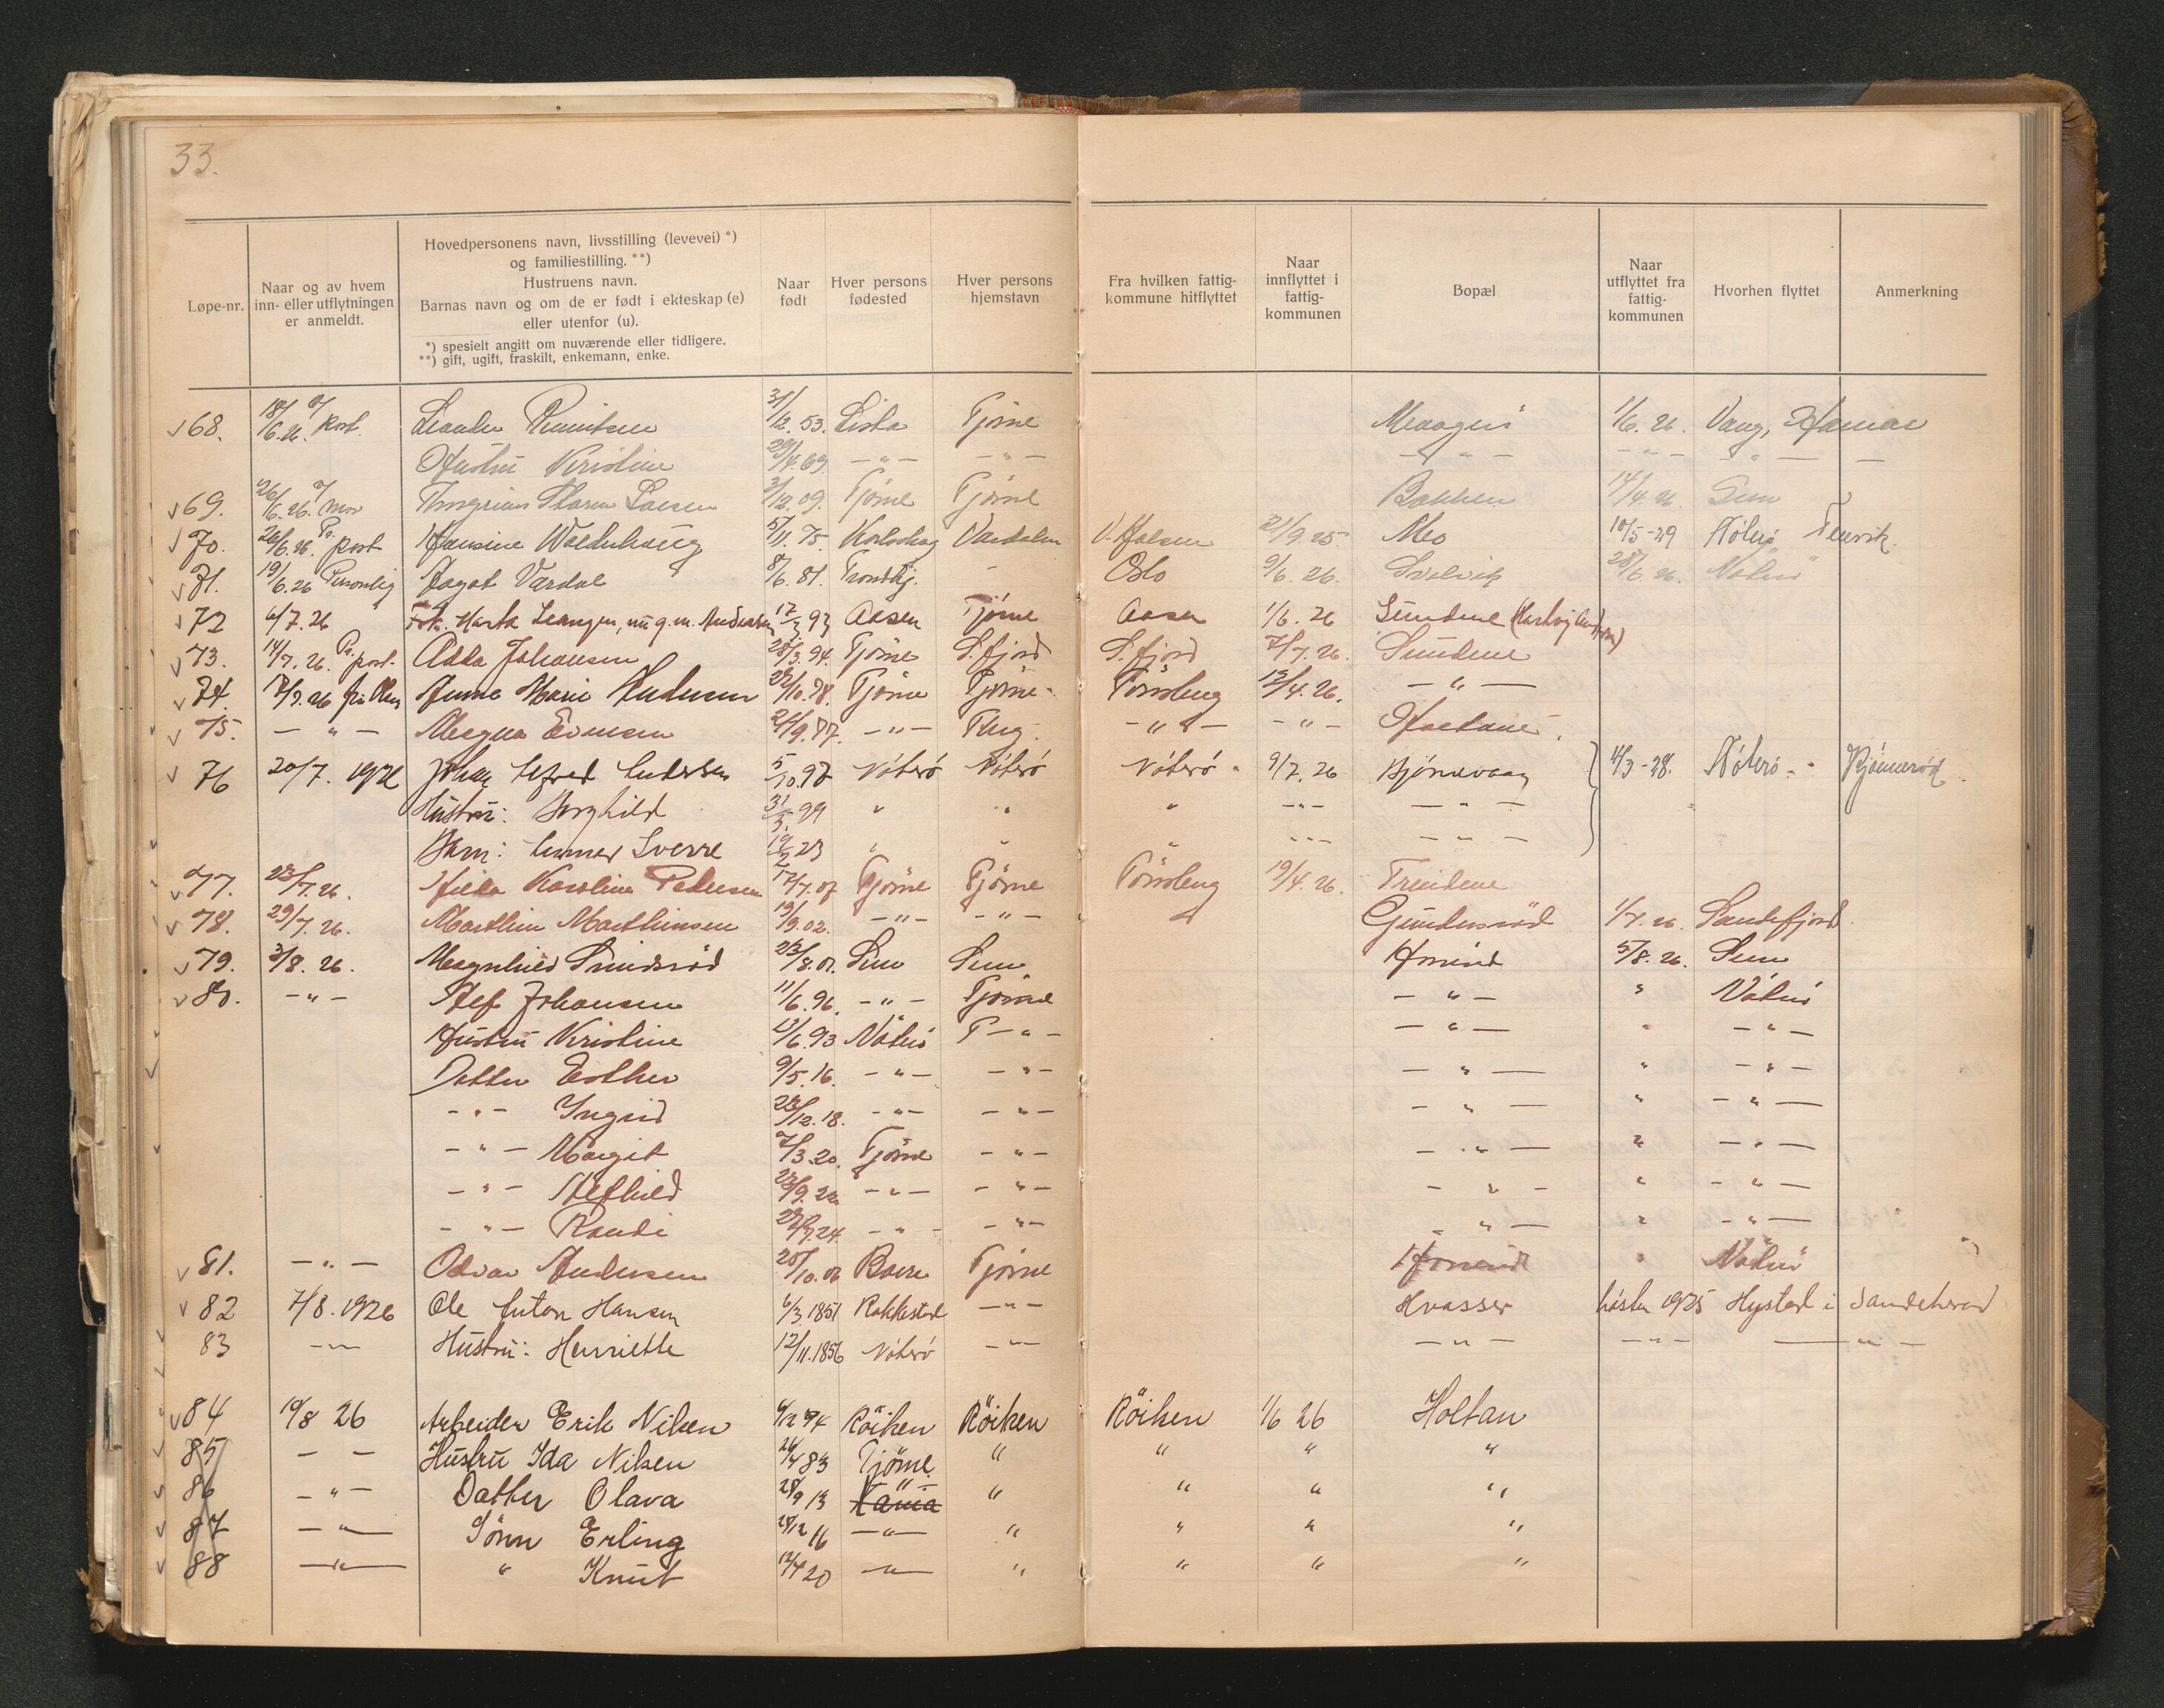 33.
Løpe-nr.
Naar og av hvem
inn- eller utflytningen
er anmeldt.
Hovedpersonens navn, livsstilling (levevei) *)
og familiestilling. **)
Hustruens navn.
Barnas navn og om de er født i ekteskap (e)
eller utenfor (u).
*) spesielt angitt om nuværende eller tidligere.
**) gift, ugift, fraskilt, enkemann, enke.
Naar
født
Hver persons
fødested
Hver persons
hjemstavn
Fra hvilken fattig-
kommune hitflyttet
Naar
innflyttet i
fattig-
kommunen
Bopæl
Naar
utflyttet fra
fattig-
kommunen
Hvorhen flyttet
Anmerkning
68. 18/6.26. post. Leander 31/12.53. Lista Tjöme 1/6.26. Vang, Hamar
Hustru Kristine 29/4.69. — " — — " — — " — — " — — " —
69. 26/6.26. Thorgrim Larsen 3/12.09. Tjöme Tjöme Bakken 14/4.26. Sem
70. 26/6.26. post Hansine 5/11.75. 21/9.25. Mo 10/5-29 Nöterö Tenvik
71. 19/6.26 Personlig Aagot Værdal 8/6.81. Trondhj. - Oslo 9/6.26. Svelvik 28/6.26. Nöterö
72 6/7.26 Frk. Marta Leangen, nu g.m. Andersen 17/3 93 Aasen Tjöme Aasen 1/6.26 Sundene (Hartvig Andersen)
73. 14/7.26. Pr. post. Adda Johansen 28/3.94. Tjöme S.fjord S.fjord 7/7.26. Sundene
74. 17/7.26 fru Olsen Anna Marie Andersen 22/10.78. Tjöme Tjöme Tönsberg 12/4.26. — " —
75. — " — Magna Evensen 24/9.87. — " — Tbrg. — " — — " —
76 20/7. 1926 Johan Alfred Andersen 5/10.97 Nöterö Nöterö Nöterö 9/7.26 Bjönnevaag 4/3-28. Nöterö - Bjönnerød
Hustru: Borghild 31/3.99 " " " - " - — " —
Barn: Gunnar Sverre 19/2 23 " " " - " - — " —
77. 23/7.26. Hilda Karoline Pedersen 17/7.07 Tjöme Tjöme Tönsberg 19/4.26.
78. 29/7.26. Marthin Marthinsen 19/9.02. — " — — " — Gundersröd 1/7.26. Sandefjord
79. 3/8.26. Magnhild Smidsröd 23/8.07. Sem Sem 5/8.26. Sem
80. — " — Alf Johansen 11/6.96. — " — Tjöme — " — " Nöterö
Hustru Kristine 13/6.93 Nöterö T — " — — " — " — " —
Datter Esther 9/5.16. — " — — " — — " — " — " —
— " — Ingrid 23/12.18. — " — — " — — " — " — " —
— " — Margit 7/3.20. Tjöme — " — — " — " — " —
— " — Alfhild 23/9.22 — " — — " — — " — " — " —
— " — Randi 29/7.24. — " — — " — — " — " — " —
81. — " — Odvar Andersen 28/10.06 Tjöme " Nöterö
82 7/8.1926 Ole Anton Hansen 6/3.1851 Rakkestad — " — Hvasser hösten 1925 Hystad i Sandeherad
83 — " — Hustru: Henriette 12/11.1856 Nöterö — " — — " — — " — — " —
84 19/8 26 Arbeider Erik Nilsen 6/12 74 Röiken Röiken Röiken 1/6 26 Holtan
85 — — Hustru Ida Nilsen 26/4 83 Tjöme " " " "
86 — " — Datter Olava 28/9 13 — " — " " " "
87 — " — Sönn Erling 28/12 16 — " — " " " "
88 — " — " Knut 12/4 20 — " — " " " "